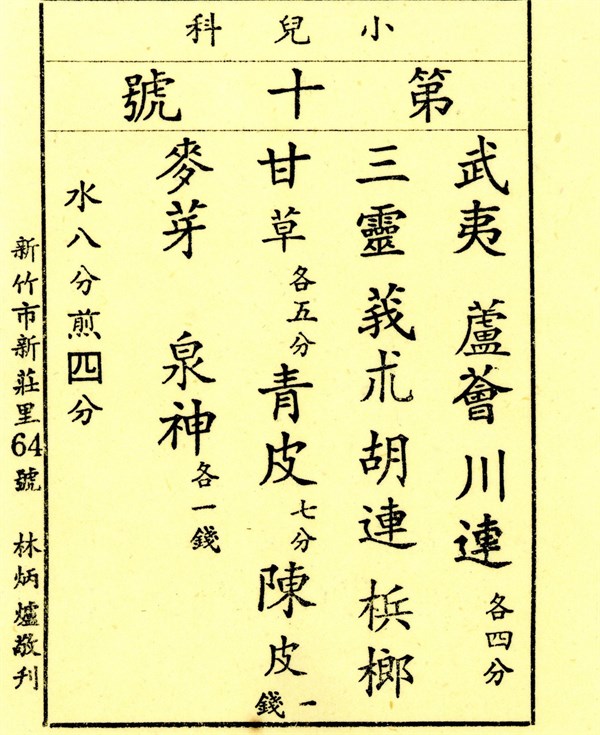 小兒科
第十號
武夷 蘆薈 川連 各四分
三靈 莪朮 胡連 梹榔
甘草 各五分 青皮 七分 陳皮 一錢
麥芽 泉神 各一錢
水八分煎四分
新竹市新莊里64號 林炳爐敬刊